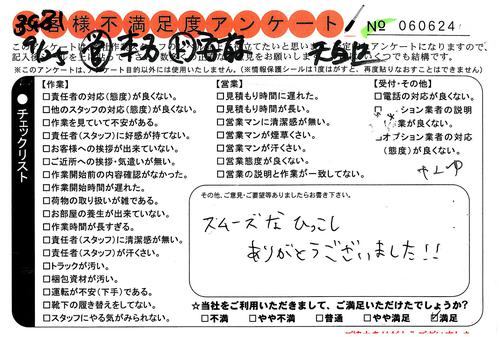 お客様不満足度アンケート
No 060624
【作業】
□責任者の対応(態度)が良くない。
□他のスタッフの対応(態度)が良くない。
□作業を見ていて不安がある。
□責任者(スタッフ)に好感が持てない。
□お客様への挨拶が出来ていない。
□ご近所への挨拶・気遣いが無い。
□作業開始前の内容確認がなかった。
□作業開始時間が遅れた。
□荷物の取り扱いが雑である。
□お部屋の養生が出来ていない。
□作業時間が長すぎる。
□責任者(スタッフ)に清潔感が無い。
□責任者(スタッフ)が汗くさい。
□トラックが汚い。
□梱包資材が汚い。
□運転が不安(下手)である。
□靴下の履き替えをしてない。
□スタッフにやる気がみられない。
【営業】
□見積もり時間に遅れた。
□見積もり時間が長い。
□営業マンに清潔感が無い。
□営業マンが煙草くさい。
□営業マンが汗くさい。
□営業態度が良くない。
□営業の説明と作業が一致してない。
【受付・その他】
□電話の対応が良くない。
ション業者の説明
が良くない。
□オプション業者の対応
(態度)が良くない。
チェックリスト
その他、ご意見・ご要望等ありましたらお書き下さい。
スムーズな ひっこし
ありがとうございました!!
☆当社をご利用いただきまして、ご満足いただけたでしょうか?
□不満 □やや不満 □普通 □やや満足 ☑満足